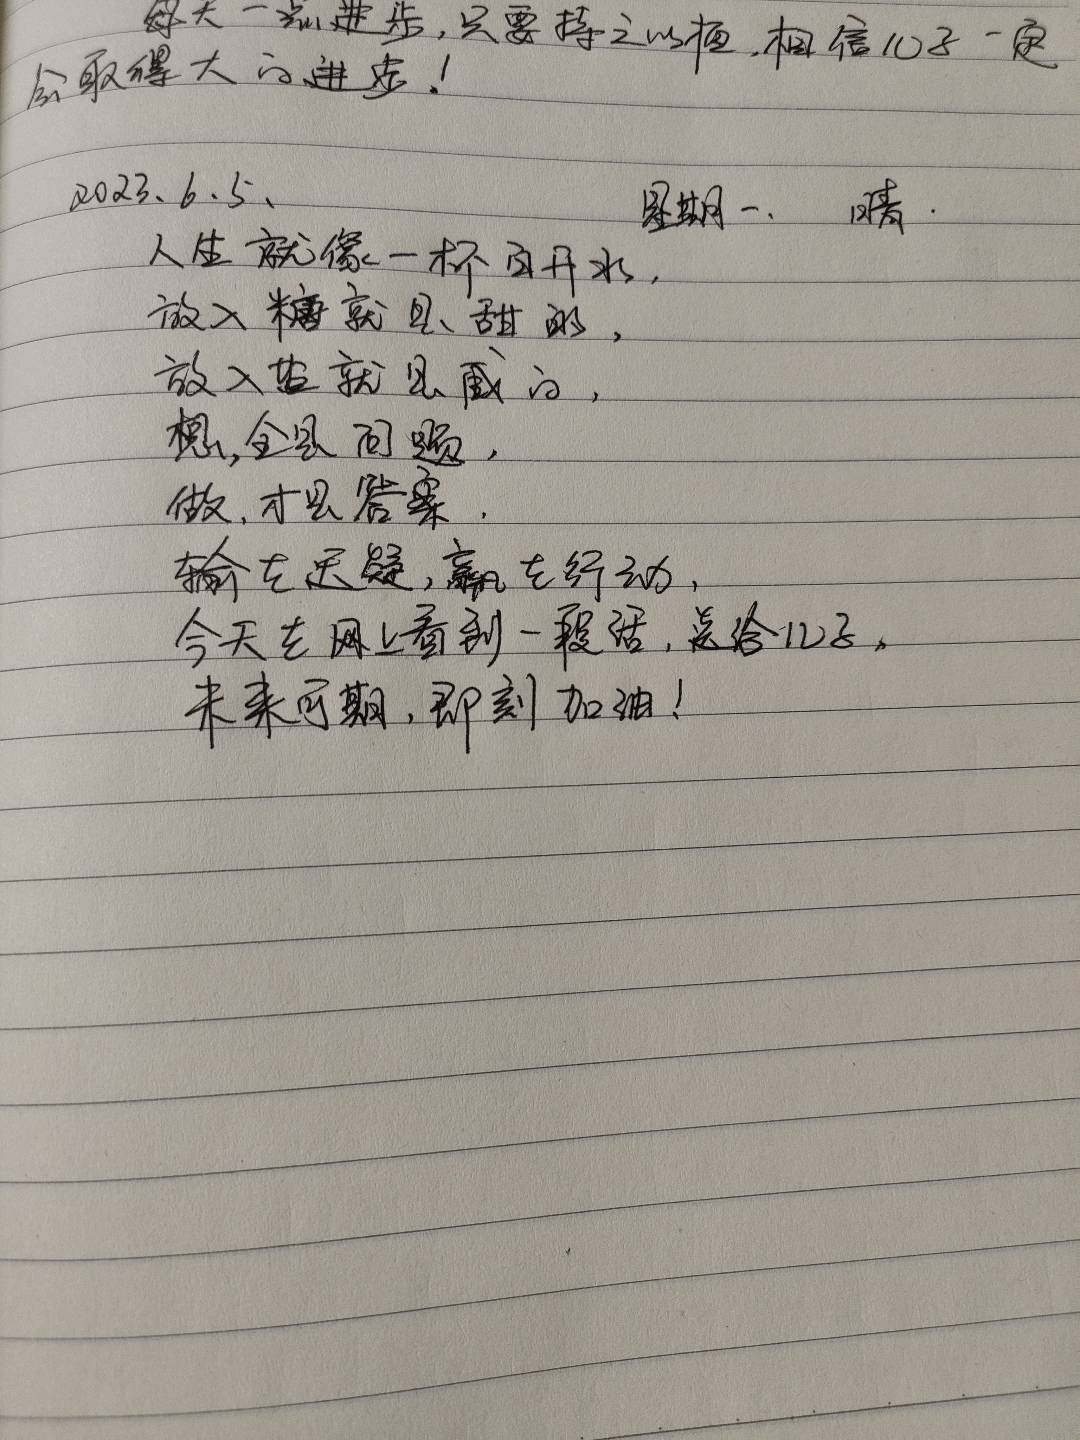 每天一点进步,只要持之以恒,相信儿子一定
会取得大的进步!
2023.6.5、 星期一. 晴.
人生就像一杯白开水,
放入糖就是甜的,
放入盐就是咸的,
想,全是问题,
做,才是答案.
输在迟疑,赢在行动,
今天在网上看到一段话,送给儿子。
未来可期,即刻加油!